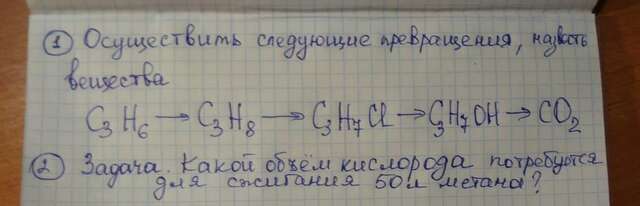 1 Осуществить следующие превращения, назвать
вещества
C3H6 → C3H8 → C3H7Cl → C3H7OH → CO2
2 Задача. Какой объём кислорода потребуется
для сжигания 50л метана?